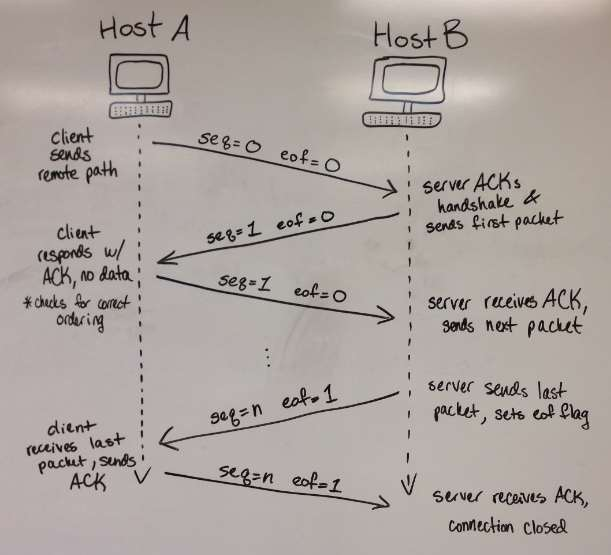 Host A
Host B
client
sends
remote path
seq=0 eof=0
server ACKs
handshake &
sends first packet
seq=1 eof=0
client
responds w/
ACK, no data
*checks for correct
ordering
seq=1 eof=0
server receives ACK,
sends next packet
...
server sends last
packet, sets eof flag
seq=n eof=1
client
receives last
packet, sends
ACK
seq=n eof=1
server receives ACK,
connection closed